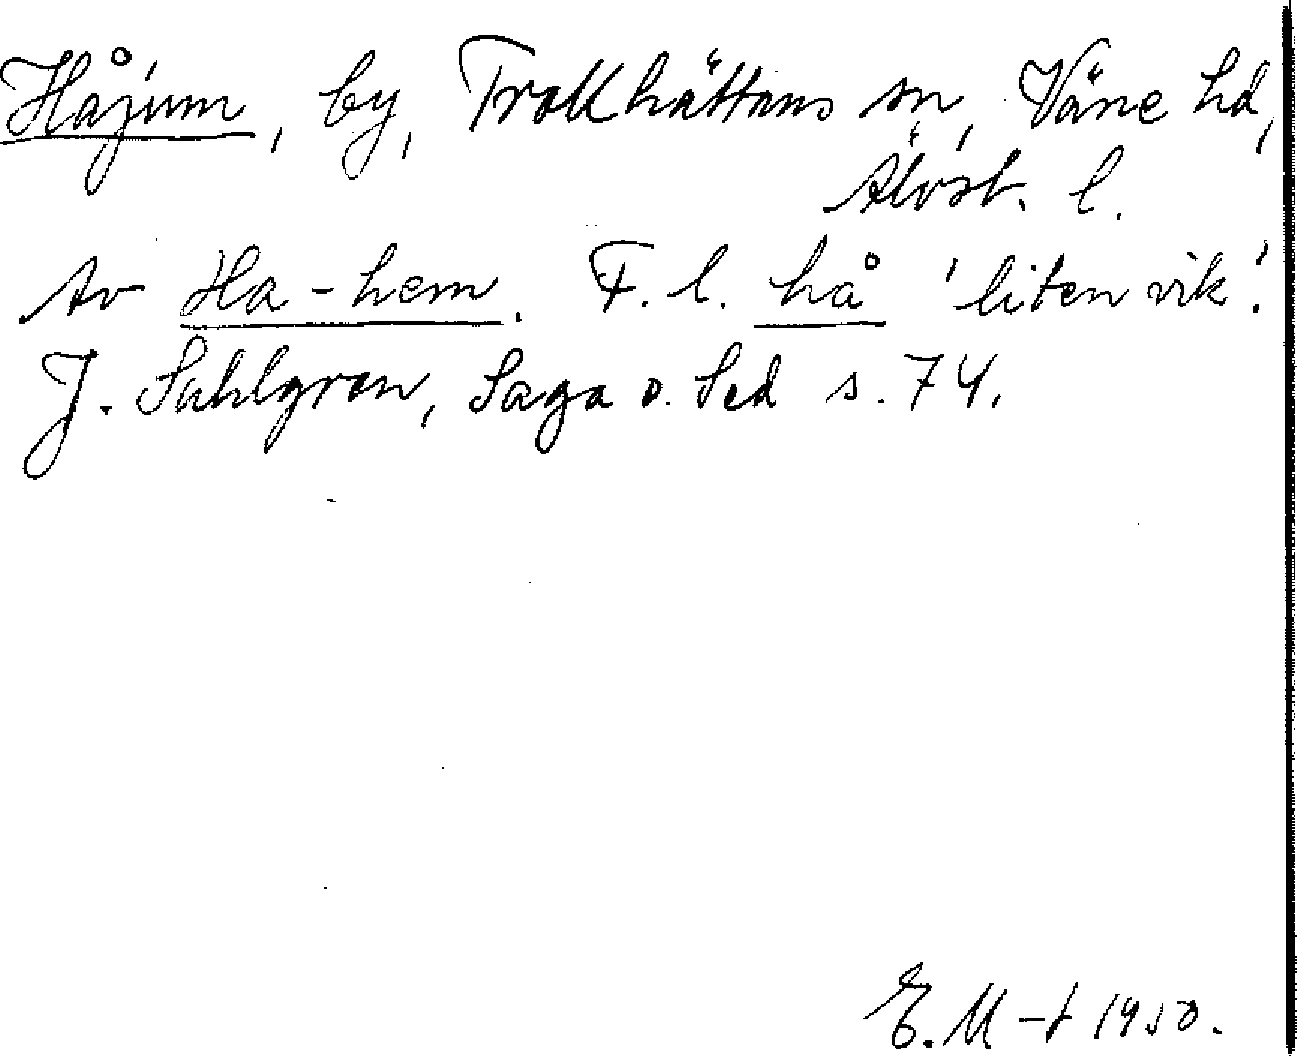 Håjum, by, Trollhättans sn, Väne hd,
Älvsb. l.
Av Ha-hem. F. l. hå 'liten vik'.
J. Sahlgren, Saga o. Sed s. 74.
E. M-t 1950.